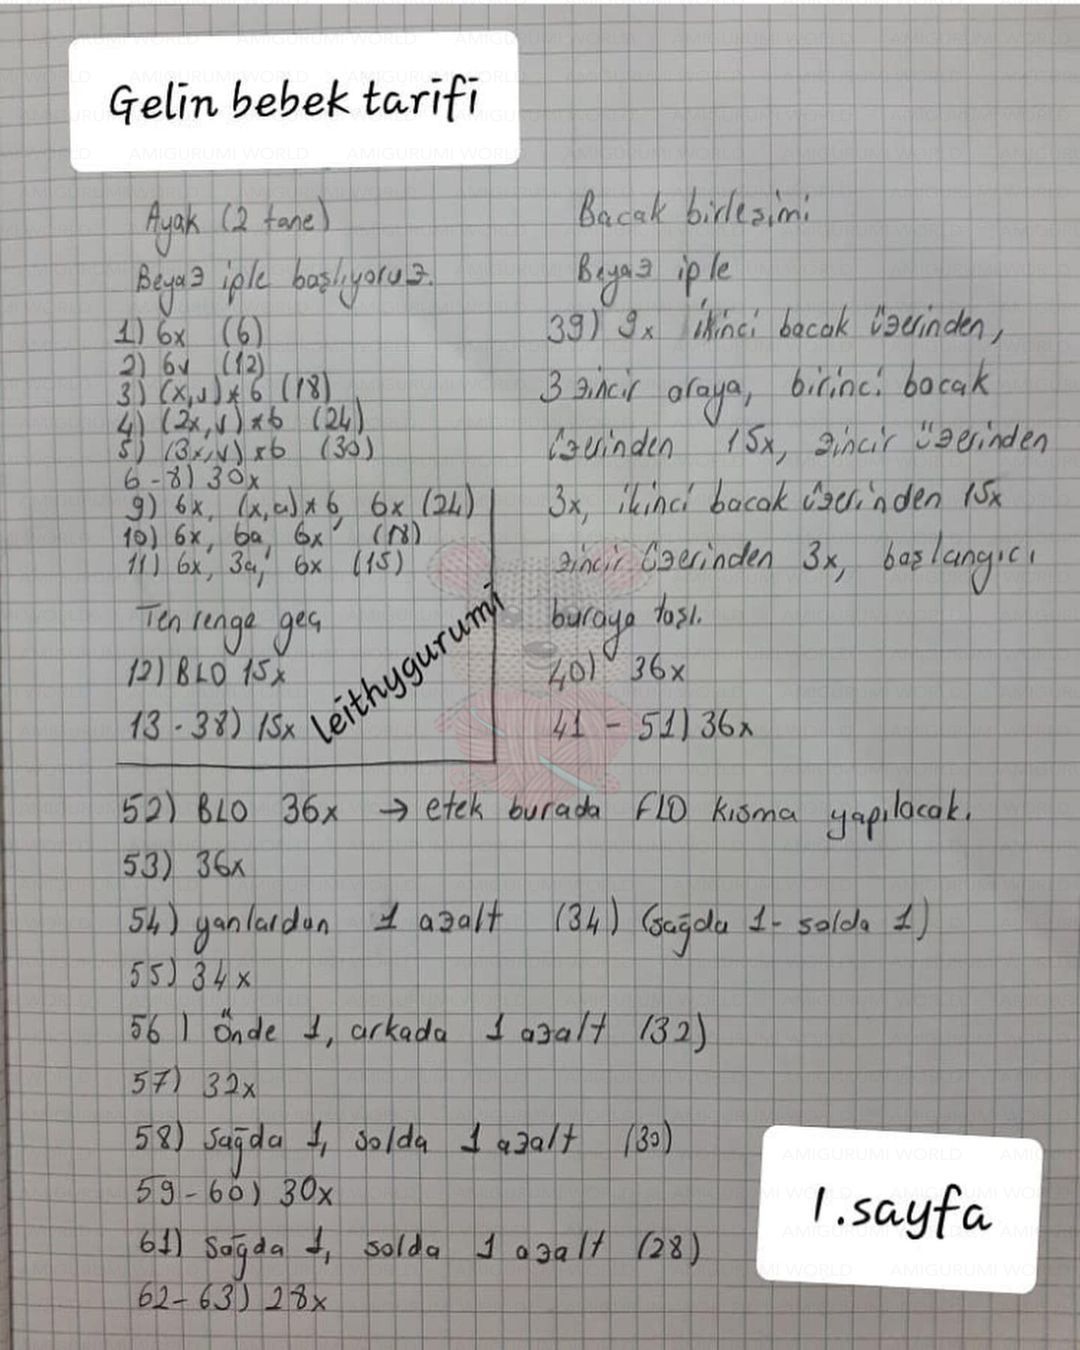 Gelin bebek tarifi
Ayak (2 tane)
Beyaz iple başlıyoruz.
1) 6x (6)
2) 6v (12)
3) (x,v)*6 (18)
4) (2x,v)*6 (24)
5) (3x,v)*6 (30)
6-8) 30x
9) 6x, (x,a)*6, 6x (24)
10) 6x, 6a, 6x (18)
11) 6x, 3a, 6x (15)
Ten renge geç
12) BLO 15x
13-38) 15x
leithygurumi
Bacak birleşimi
Beyaz iple
39) 9x ikinci bacak üzerinden,
3 zincir araya, birinci bacak
üzerinden 15x, zincir üzerinden
3x, ikinci bacak üzerinden 15x
zincir üzerinden 3x, başlangıcı
buraya taşı.
40) 36x
41 - 51) 36x
52) BLO 36x → etek burada FLO kısma yapılacak.
53) 36x
54) yanlardan 1 azalt (34) (sağda 1- solda 1)
55) 34x
56) Önde 1, arkada 1 azalt (32)
57) 32x
58) Sağda 1, solda 1 azalt (30)
59-60) 30x
61) Sağda 1, solda 1 azalt (28)
62-63) 28x
1.sayfa
AMIGURUMI WORLD